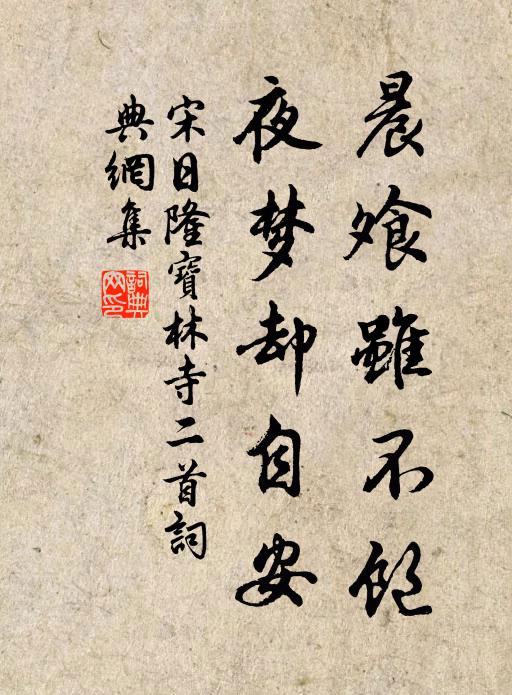 晨飧雖不飽
夜梦却自安
宋日隆寶林寺二首詞
典網集
詞典
网印